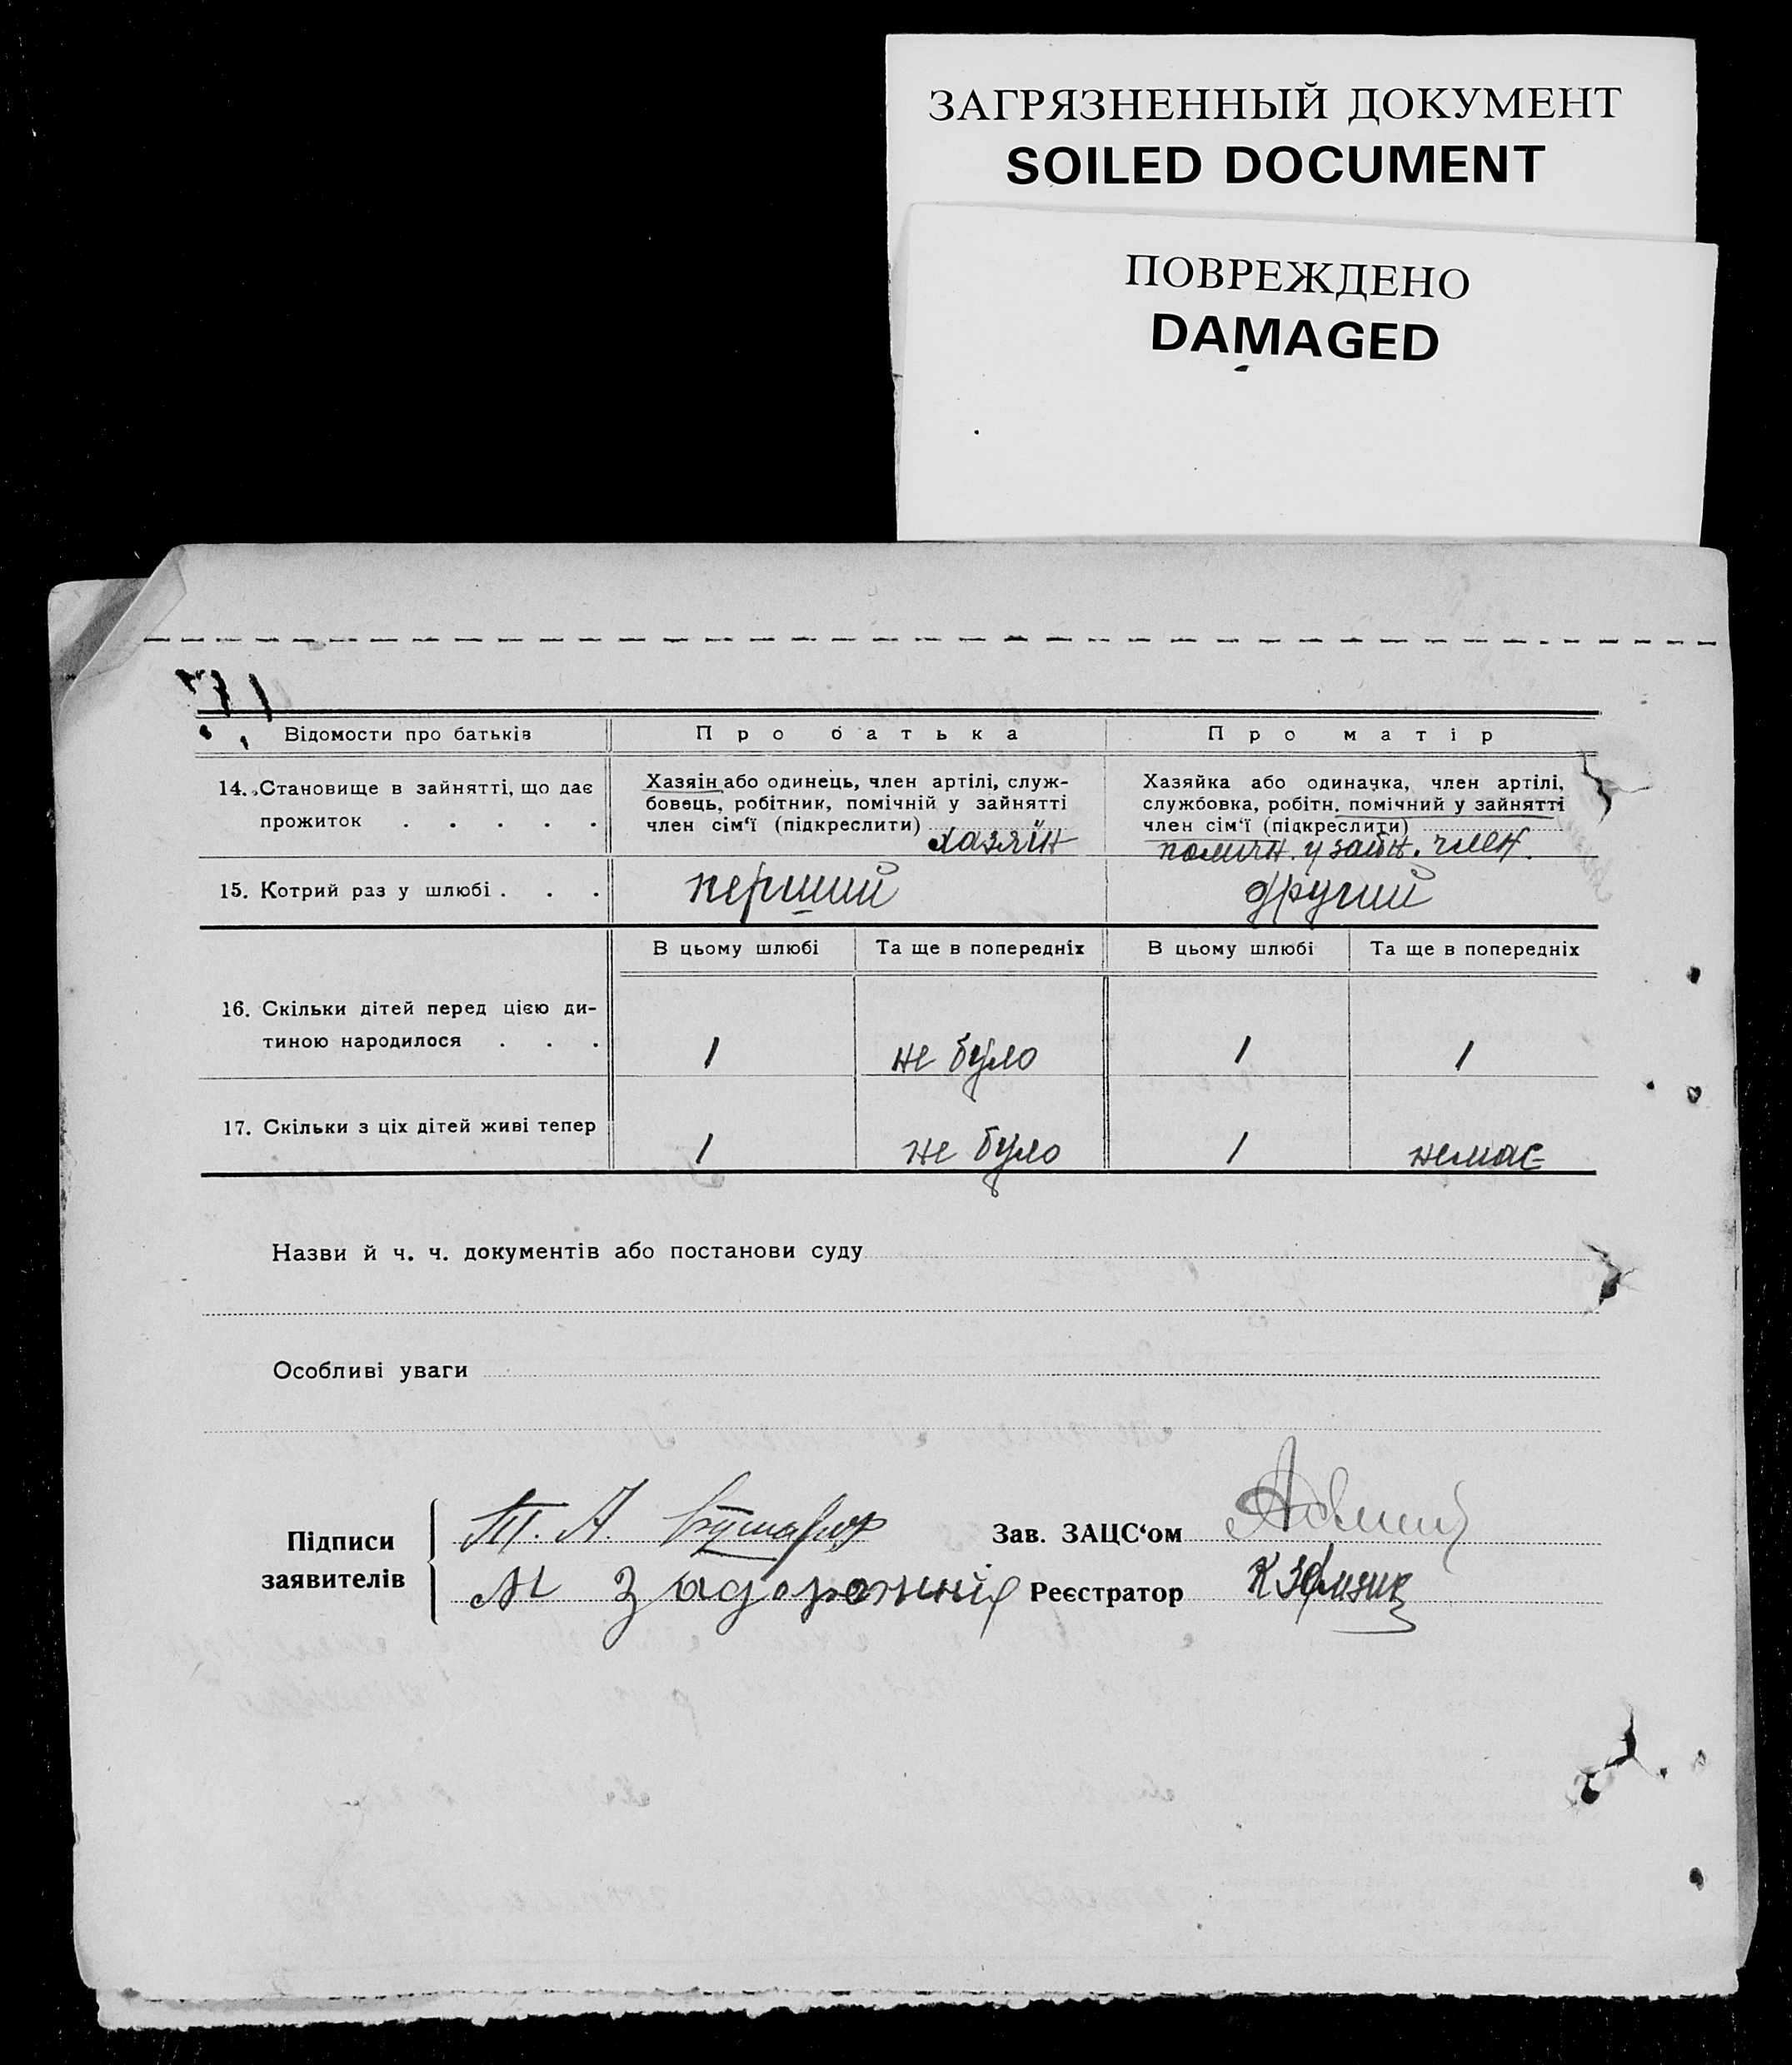 ЗАГРЯЗНЕННЫЙ ДОКУМЕНТ
SOILED DOCUMENT
ПОВРЕЖДЕНО
DAMAGED
Відомости про батьків Про батька Про матір
14. Становище в зайнятті, що дає прожиток . . . . .
Хазяін або одинець, член артілі, служ-
бовець, робітник, помічній у зайнятті
член сім‘ї (підкреслити) хазяїн
Хазяйка або одиначка, член артілі,
службовка, робітн. помічний у зайнятті
член сім‘ї (підкреслити)
помічн. у зайн. член.
15. Котрий раз у шлюбі . . . перший другий
В цьому шлюбі Та ще в попередніх В цьому шлюбі Та ще в попередніх
16. Скільки дітей перед цією ди-
тиною народилося . . . 1 не було 1 1
17. Скільки з ціх дітей живі тепер 1 не було 1 немає
Назви й ч. ч. документів або постанови суду
Особливі уваги
Підписи
заявителів
Т. А.
М Задорожній
Зав. ЗАЦС‘ом
Реєстратор